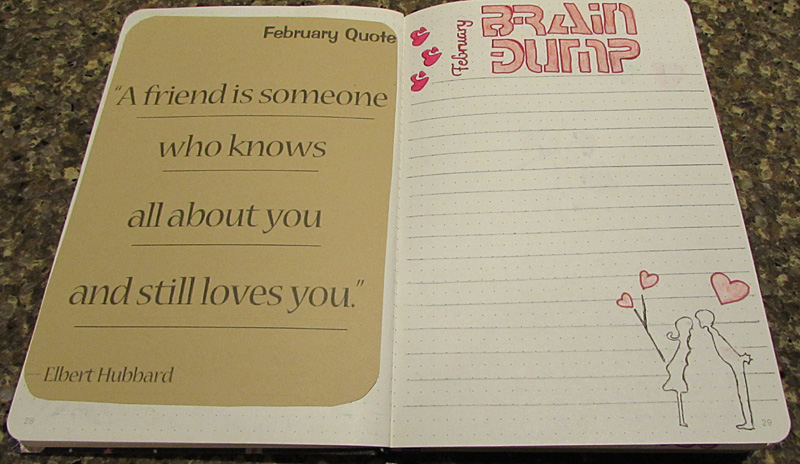 February Quote
“A friend is someone
who knows
all about you
and still loves you.”
— Elbert Hubbard
28
February
BRAIN
DUMP
29